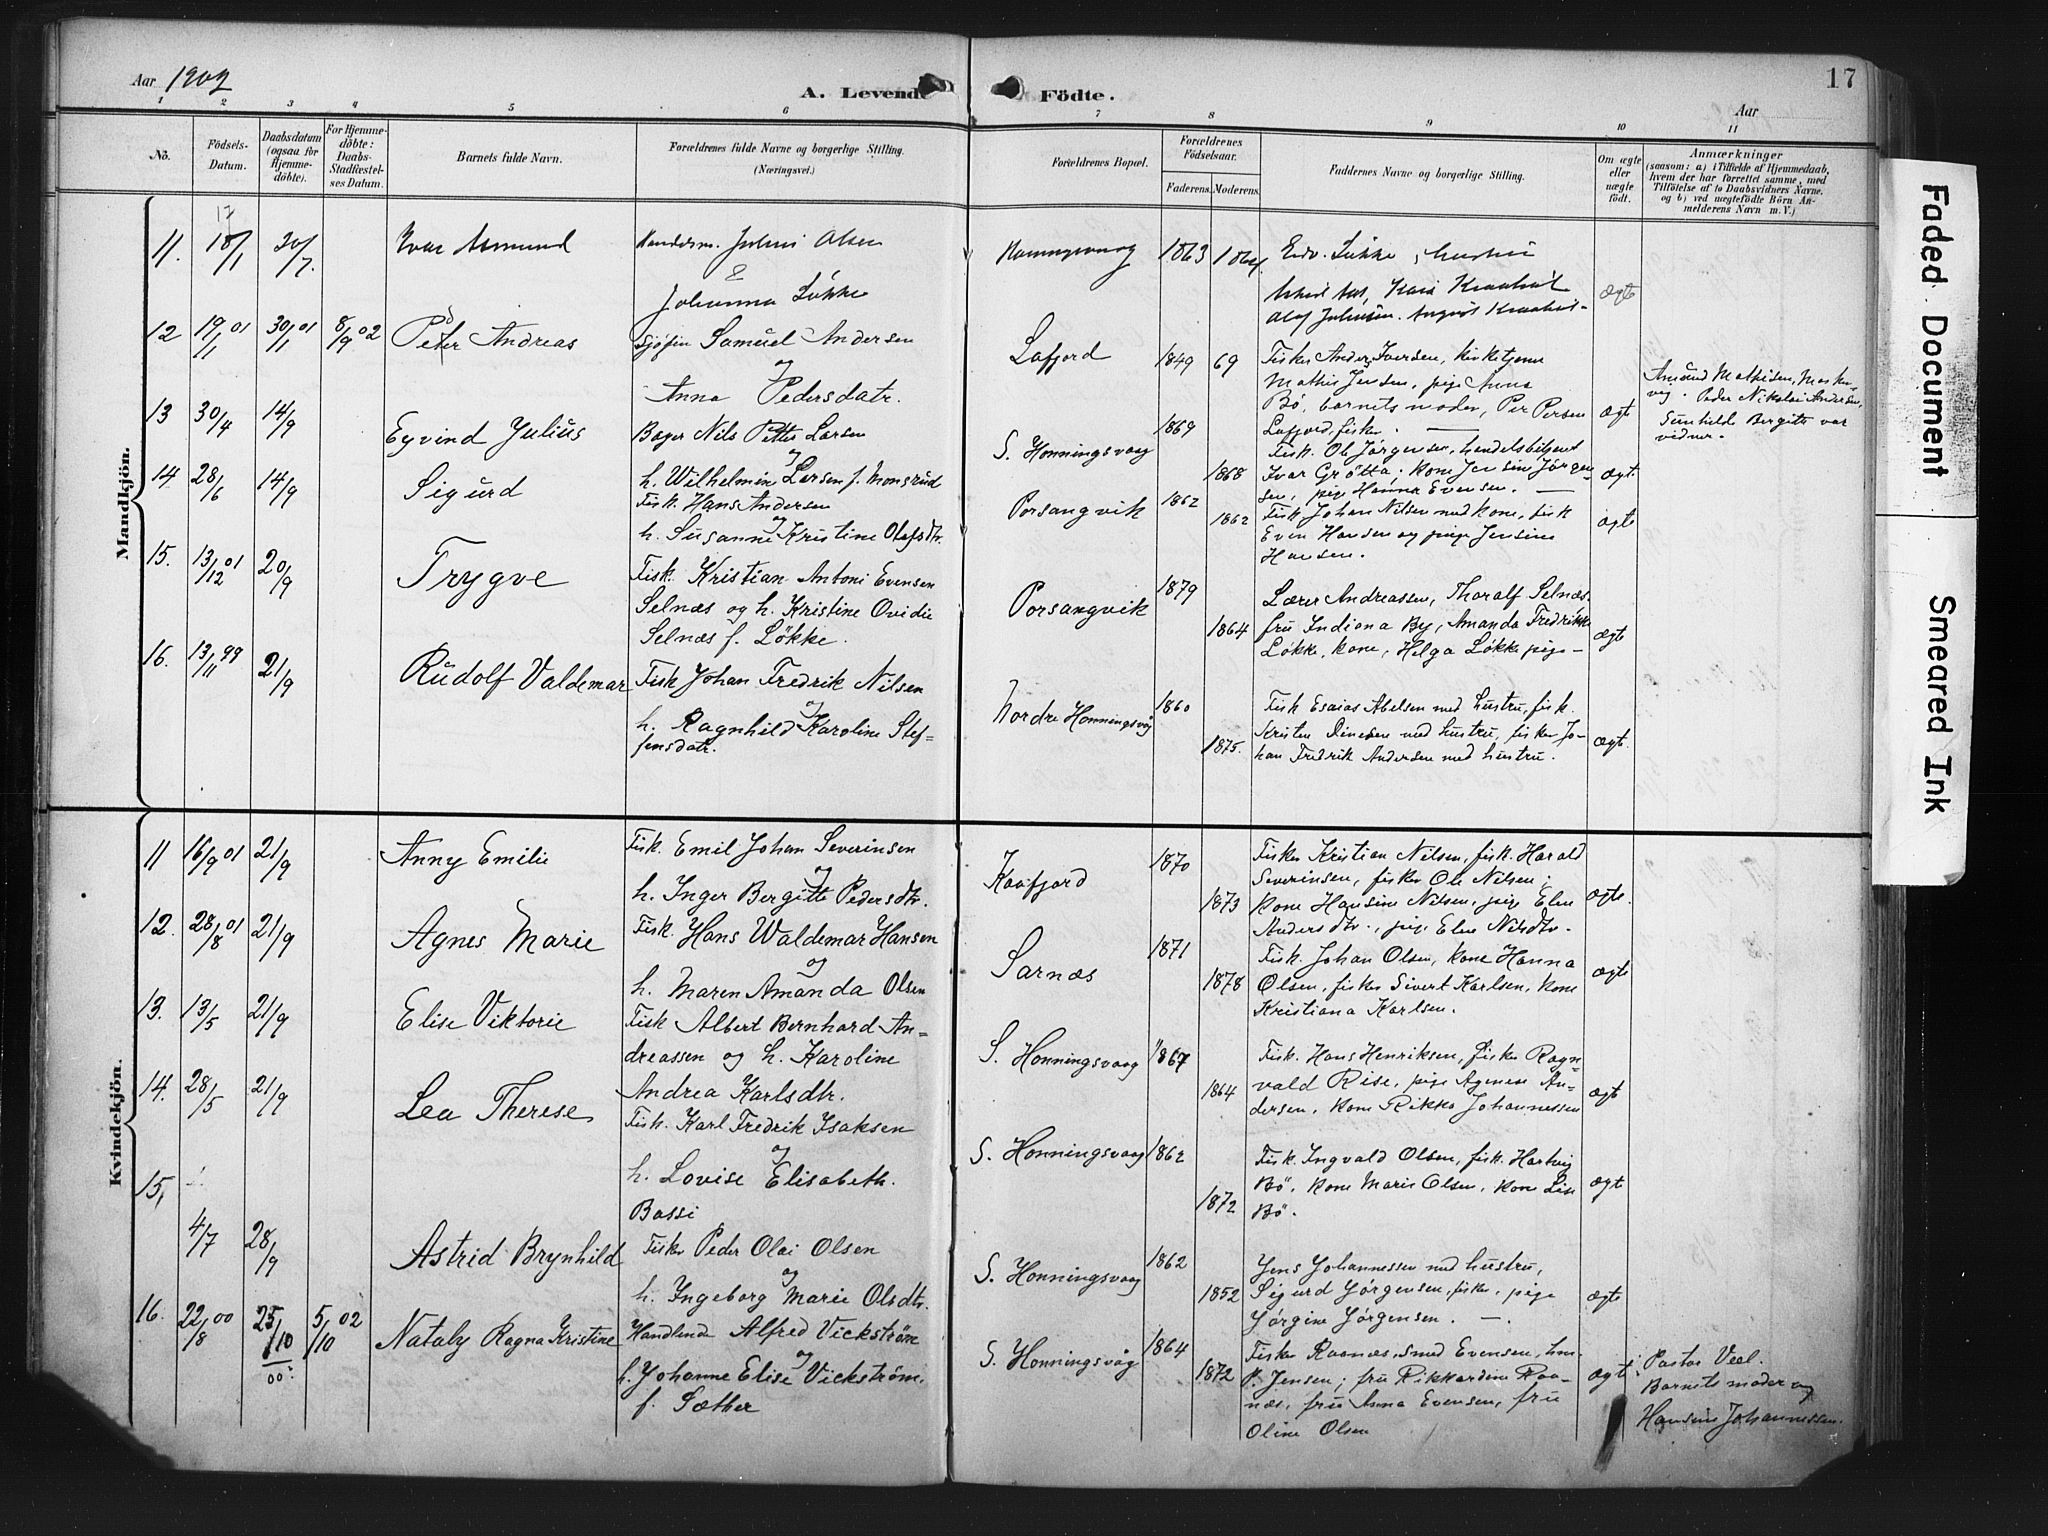 Aar 1902
A. Levende Födte.
Aar
17
1 2 3 4 5 6 7 8 9 10 11
No.
Födsels-Datum.
Daabsdatum (ogsaa for Hjemme-döbte).
For Hjemme-döbte: Daabs-Stadfæstel-ses Datum.
Barnets fulde Navn.
Forældrenes fulde Navne og borgerlige Stilling.
(Næringsvei.)
Forældrenes Bopæl.
Forældrenes Födselsaar.
Faderens. Moderens.
Faddernes Navne og borgerlige Stilling.
Om ægte eller uægte födt.
Anmærkninger
(saasom: a) i Tilfælde af Hjemmedaab,
hvem der har forrettet samme, med
Tilföielse af to Daabsvidners Navne,
og b) ved uægtefödte Börn An-
melderens Navn m. V.)
Mandkjön.
11. 17 18/1 20/7. Ivar Asmund
Handelsm. Julius Olsen
&
Johanna Løkke
Honningsvaag 1863 1864
Edv. Løkke, hustru
Kaia
Olaf Johnsen. August
ægte
12 19/1 01 30/1 01 8/9 02 Peter Andreas
d
Sjøfin Samuel Andersen
og
Anna Pedersdatr.
Lafjord 1849 69
Fisker Anders Iversen, kirketjener
Mathis Jensen, pige Anna
Bö, barnets moder, Per Persen
Lafjord, fisker. —
ægte
Amund Mathisen,
Peder Nikolai Andersen,
Sunhilde Bergitte var
vidner.
13 30/4 14/9 Eyvind Julius
Bager Nils Petter Larsen
og
h. Wilhelmine Larsen f. Monsrud
S. Honningsvaag 1869 1868
Fisk. Ole Jørgensen, handelsbetjent
Ivar Grøtta. kone Jensine Jørgen-
sen, pige Hanna Evensen. —
ægte
14. 28/6 14/9 Sigurd
Fisk. Hans Andersen
og
h. Susanne Kristine Olafsdtr.
Porsangvik 1862 1862
Fisk. Johan Nilsen med kone, fisk
Even Hansen og pige Jensine
Hansen.
ægte
15. 13/12 01 20/9 Trygve
Fisk. Kristian Antoni Evensen
Selnæs og h. Kristine Ovidie
Selnæs f. Løkke.
Porsangvik 1879 1864
Lærer Andreassen, Thoralf Selnæs.
fru Indiana By, Amanda Fredrikke
Løkke, kone, Helga Løkke pige –
ægte
16. 13/11 99 21/9 Rudolf Valdemar
Fisk Johan Fredrik Nilsen
og
h. Ragnhild Karoline Stef-
fensdatr.
Nordre Honningsvåg 1860 1875.
Fisk Esaias Abelsen med hustru, fisk.
Kristen Dinesen med hustru, fisker Jo-
han Fredrik Andersen med hustru.
ægte.
Kvindekjön.
11 16/9 01 21/9 Anny Emilie
Fisk. Emil Johan Severinsen
og
h. Inger Bergitte Pedersdtr.
Kaafjord 1870 1873
Fisker Kristian Nilsen, fisk. Harald
Severinsen, fisker Ole Nilsen,
kone Hansine Nilsen, pige Elen
Andersdtr., pige Elen Nilsdtr.
ægte.
12. 28/8 01 21/9 Agnes Marie
Fisk. Hans Waldemar Hansen
og
h. Maren Amanda Olsen
Sarnæs 1871 1878
Fisk. Johan Olsen, kone Hanna
Olsen, fisker Sivert Karlsen, kone
Kristiana Karlsen.
ægte
13. 13/5 21/9 Elise Viktorie
Fisk Albert Bernhard An-
dreassen og h. Karoline
Andrea Karlsdtr.
S. Honningsvaag 1867 1864
Fisk. Hans Henriksen, fisker Ragn-
vald Rise, pige Agnese An-
dersen, kone Rikka Johannessen
ægte
14. 28/5 21/9 Lea Therese
Fisk. Karl Fredrik Isaksen
og
h. Lovise Elisabeth
Bassi
S. Honningsvaag 1862 1872
Fisk. Ingvald Olsen, fisk. Hartvig
Bö, kone Marie Olsen, kone Lise
Bö.
ægte
15, 4/7 28/9 Astrid Brynhild
Fisker Peder Olai Olsen
og
h. Ingeborg Marie Olsdtr.
S. Honningsvaag 1862 1852
Jens Johannessen med hustru,
Sigurd Jørgensen, fisker, pige
Jørgine Jørgensen. —.
ægte
16. 22/8 00 25/10 00 5/10 02 Nataly Ragna Kristine
Handlende Alfred Vickström
og
h. Johanne Elise Vickström.
f. Sæther
S. Honningsvåg 1864 1872
Fisker Raanæs, smed Evensen,
P. Jensen; fru Rikkardine Raa-
næs, fru Anna Evensen, fru
Oline Olsen
ægte
Pastor Veel.
Barnets moder og
Hansine Johannessen.
Faded Document
Smeared Ink